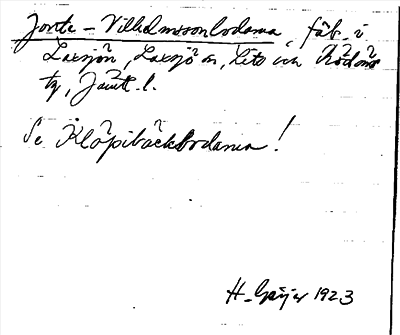 Jonte-Villelmssonbodarna, fäb. i
Laxsjön, Laxsjö sn, Lits och Rödöns
tg, Jämtl. l.
Se Klöpibäckbodarna!
H. Geijer 1923